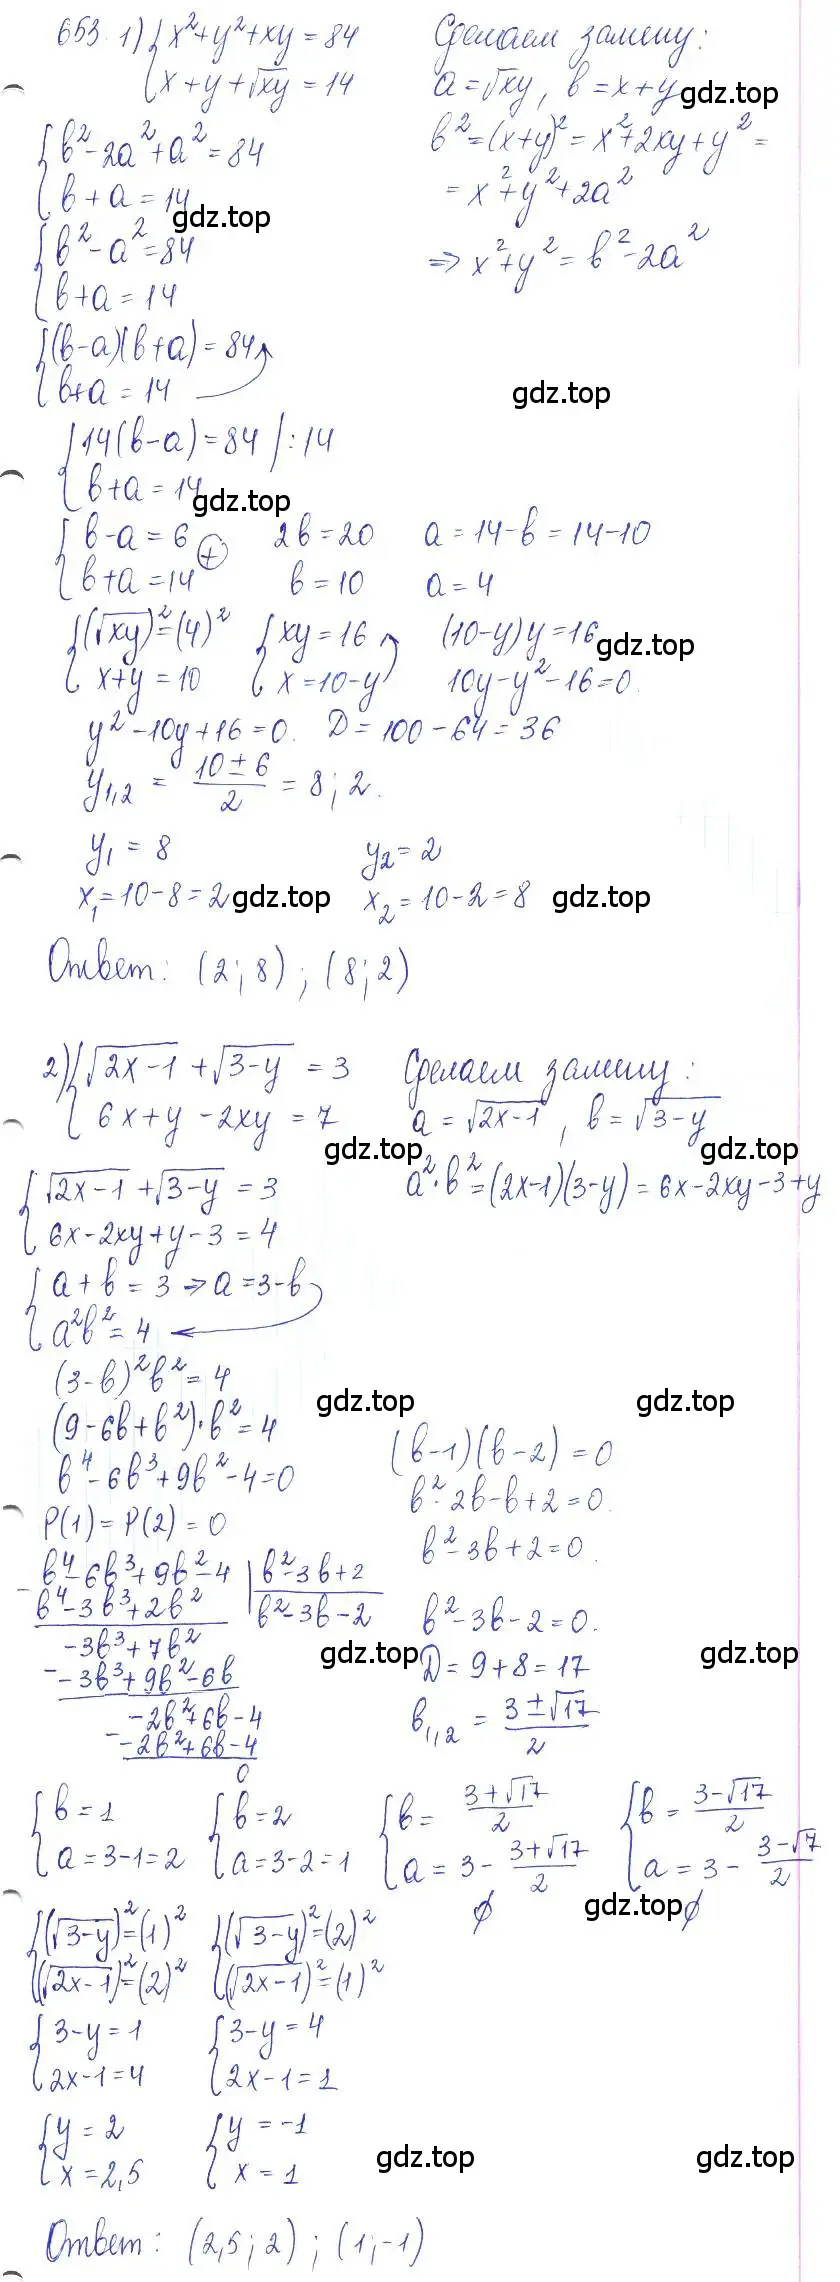 653. 1) { x² + y² + xy = 84
{ x + y + √xy = 14
Сделаем замену:
a = √xy, b = x + y
gdz.top
b² = (x+y)² = x² + 2xy + y² =
= x² + y² + 2a²
⇒ x² + y² = b² - 2a²
{ b² - 2a² + a² = 84
{ b + a = 14
gdz.top
{ b² - a² = 84
{ b + a = 14
{ (b-a)(b+a) = 84
{ b+a = 14
gdz.top
{ 14(b-a) = 84 | :14
{ b+a = 14
gdz.top
{ b - a = 6
{ b + a = 14 (+)
2b = 20
b = 10
a = 14 - b = 14 - 10
a = 4
{ (√xy)² = (4)²
{ x + y = 10
{ xy = 16
{ x = 10 - y
(10-y)y = 16
gdz.top
10y - y² - 16 = 0.
y² - 10y + 16 = 0. D = 100 - 64 = 36
y₁,₂ = (10 ± 6)/2 = 8; 2.
y₁ = 8 y₂ = 2
x₁ = 10 - 8 = 2 gdz.top x₂ = 10 - 2 = 8 gdz.top
Ответ: (2; 8); (8; 2)
2) { √2x-1 + √3-y = 3
{ 6x + y - 2xy = 7
Сделаем замену:
a = √2x-1, b = √3-y
gdz.top gdz.top
a²·b² = (2x-1)(3-y) = 6x - 2xy - 3 + y
{ √2x-1 + √3-y = 3
{ 6x - 2xy + y - 3 = 4
{ a + b = 3 ⇒ a = 3 - b
{ a²b² = 4
(3-b)²b² = 4
gdz.top gdz.top
(9 - 6b + b²)·b² = 4
b⁴ - 6b³ + 9b² - 4 = 0
P(1) = P(2) = 0
(b-1)(b-2) = 0
b² - 2b - b + 2 = 0.
b² - 3b + 2 = 0.
- b⁴ - 6b³ + 9b² - 4 | b² - 3b + 2
b⁴ - 3b³ + 2b² | b² - 3b - 2
-3b³ + 7b²
- -3b³ + 9b² - 6b
-2b² + 6b - 4
- -2b² + 6b - 4
0
b² - 3b - 2 = 0.
gdz.top gdz.top
D = 9 + 8 = 17
b₁,₂ = (3 ± √17)/2
{ b = 1
{ a = 3 - 1 = 2
{ b = 2
{ a = 3 - 2 = 1
{ b = (3 + √17)/2
{ a = 3 - (3 + √17)/2
∅
{ b = (3 - √17)/2
{ a = 3 - (3 - √7)/2
gdz.top ∅
{ (√3-y)² = (1)²
{ (√2x-1)² = (2)²
{ (√3-y)² = (2)²
{ (√2x-1)² = (1)²
{ 3 - y = 1
{ 2x - 1 = 4
{ 3 - y = 4
{ 2x - 1 = 1
{ y = 2
{ x = 2,5
{ y = -1
{ x = 1
gdz.top gdz.top
Ответ: (2,5; 2); (1; -1)